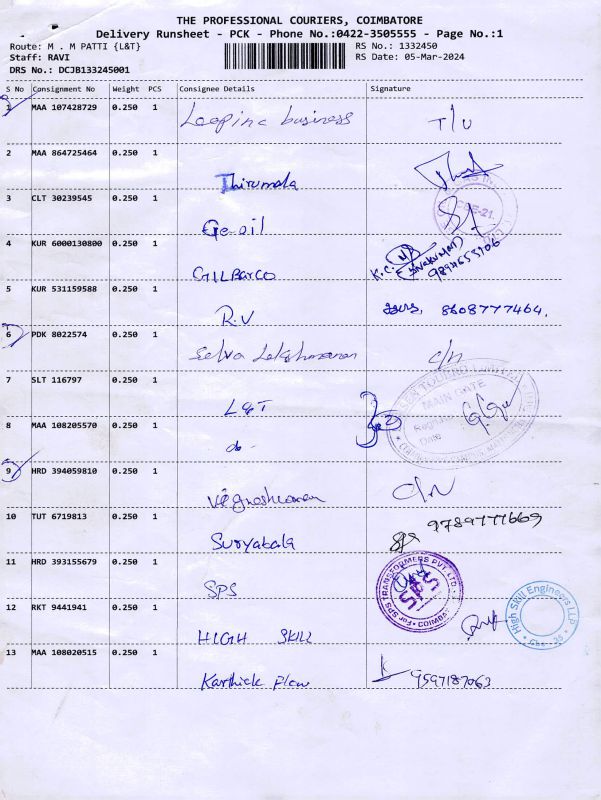 THE PROFESSIONAL COURIERS, COIMBATORE
Delivery Runsheet - PCK - Phone No.:0422-3505555 - Page No.:1
Route: M . M PATTI {L&T} RS No.: 1332450
Staff: RAVI RS Date: 05-Mar-2024
DRS No.: DCJB133245001
S No Consignment No Weight PCS Consignee Details Signature
1 MAA 107428729 0.250 1 business T/U
2 MAA 864725464 0.250 1
Thirumala
3 CLT 30239545 0.250 1
Ge-oil
4 KUR 6000130800 0.250 1
GILBARCO K.C.
5 KUR 531159588 0.250 1
R.V 8608777464.
6 PDK 8022574 0.250 1
Selva Lakshmanan C/N
7 SLT 116797 0.250 1
L&T MAIN GATE
8 MAA 108205570 0.250 1 Date
do-
9 HRD 394059810 0.250 1
C/N
10 TUT 6719813 0.250 1 9789777669
Suryabala SPS
11 HRD 393155679 0.250 1
SPS SPS TRANSFORMERS PVT.LTD
12 RKT 9441941 0.250 1 High Skill Engineers LLP
HIGH SKILL
13 MAA 108020515 0.250 1
Karthick Flow 9597187063